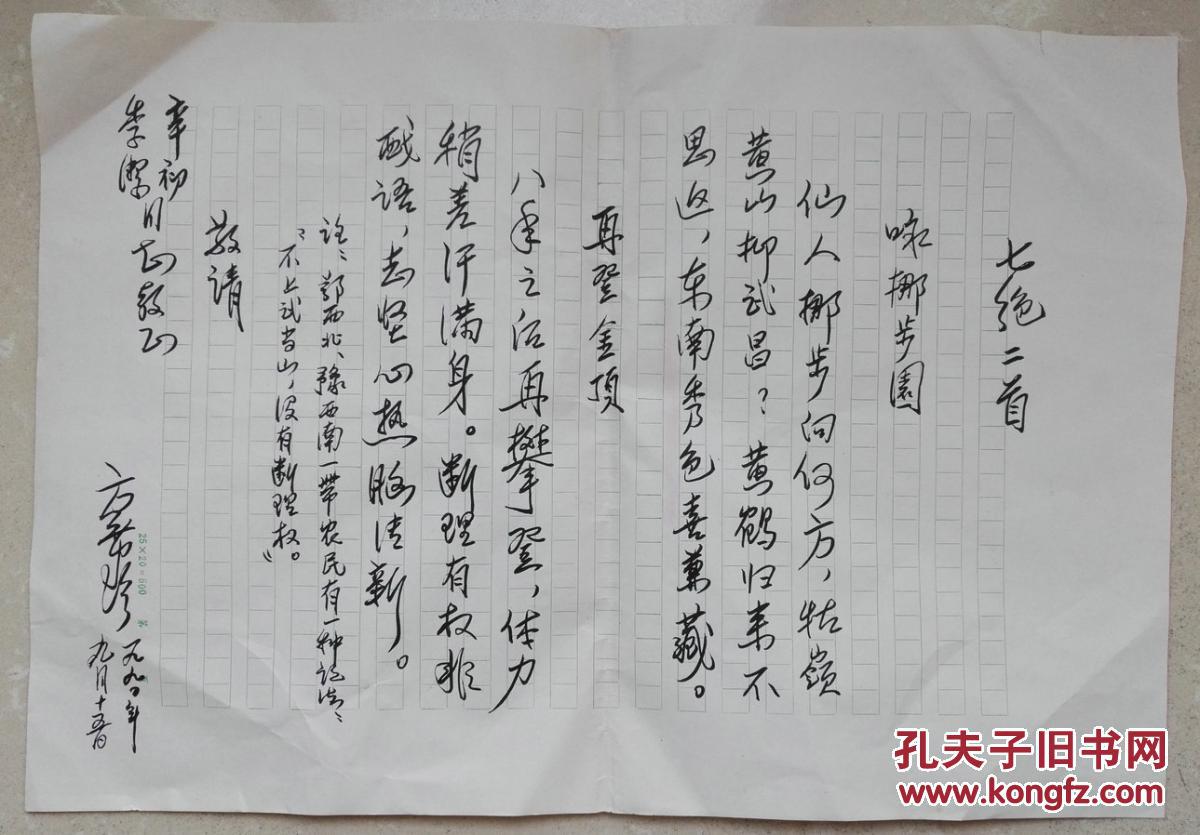 七绝二首
咏挪步園
仙人挪步向何方，牯嶺
黄山抑武昌？黄鹤归来不
思返，东南秀色喜兼藏。
再登金頂
八年之后再攀登，体力
稍差汗满身。断理有权非
戏语，志坚心热脑清新。
註：鄂西北、豫西南一带农民有一种説法：
“不上武当山，没有断理权。”
敬请
辛初
李潔 同志教正
一九九〇年
九月十五日
25×20=500
孔夫子旧书网
www.kongfz.com